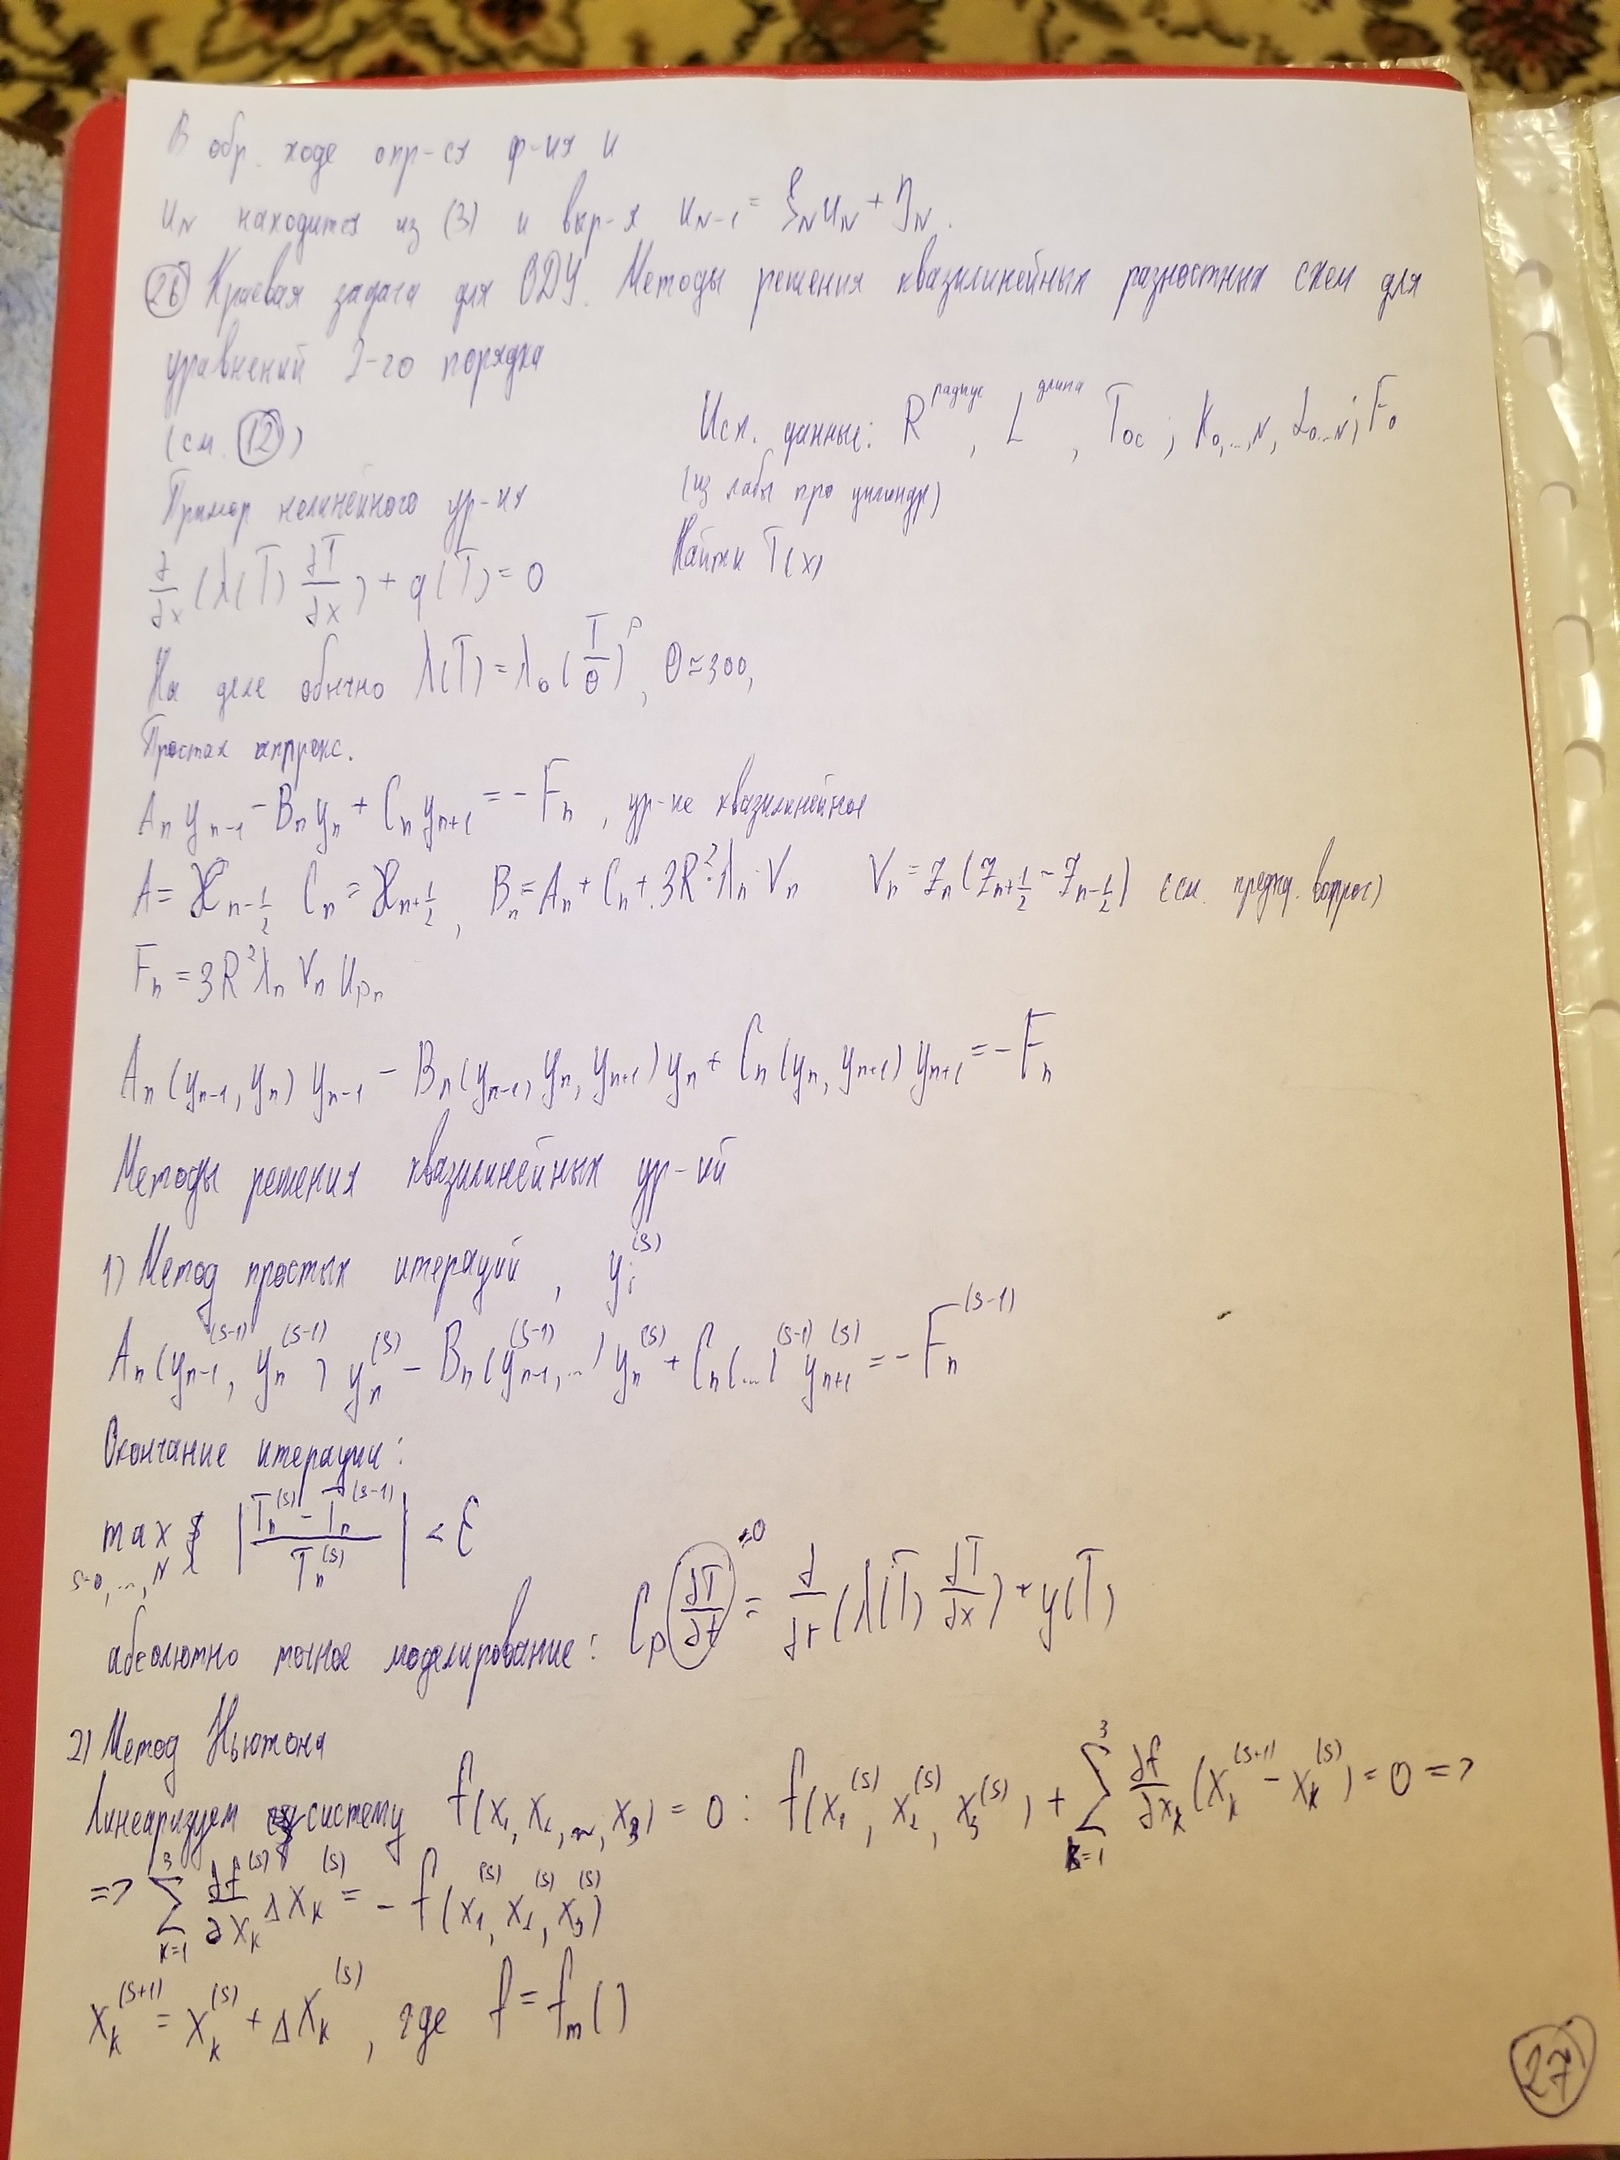 В обр. ходе опр-ся ф-ия u
u_N находится из (3) и выр-я u_{N-1} = ξ_N u_N + η_N.
(26) Краевая задача для ОДУ. Методы решения квазилинейных разностных схем для
уравнений 2-го порядка
(см. (12))
Исх. данные: R радиус, L длина, T_{oc}; K_{0,...,N}, α_{0...N}; F_0
(из лабы про цилиндр)
Найти T(x)
Пример нелинейного ур-ия
∂/∂x (λ(T) ∂T/∂x) + q(T) = 0
На деле обычно λ(T) = λ_0 (T/θ)^p, θ ≈ 300,
Простая аппрокс.
A_n y_{n-1} - B_n y_n + C_n y_{n+1} = -F_n, ур-ие квазилинейное
A = ϰ_{n-1/2} C_n = ϰ_{n+1/2}, B_n = A_n + C_n + 3R^2·λ_n·V_n V_n = z_n (z_{n+1/2} - z_{n-1/2}) (см. предыд. вопрос)
F_n = 3R^2 λ_n V_n u_{p_n}
A_n (y_{n-1}, y_n) y_{n-1} - B_n (y_{n-1}, y_n, y_{n+1}) y_n + C_n (y_n, y_{n+1}) y_{n+1} = -F_n
Методы решения квазилинейных ур-ий
1) Метод простых итераций, y_i^{(s)}
A_n (y_{n-1}^{(s-1)}, y_n^{(s-1)}) y_n^{(s)} - B_n (y_{n-1}^{(s-1)}, ...) y_n^{(s)} + C_n (...)^{(s-1)} y_{n+1}^{(s)} = -F_n^{(s-1)}
Окончание итерации:
max_{s=0,...,N} { |(T_n^{(s)} - T_n^{(s-1)}) / T_n^{(s)}| < ε
абсолютно точное моделирование: C_p (∂T/∂t) = ∂/∂r (λ(T) ∂T/∂x) + y(T)
2) Метод Ньютона
Линеаризуем систему f(x_1, x_2, ..., x_3) = 0 : f(x_1^{(s)}, x_2^{(s)}, x_3^{(s)}) + Σ_{k=1}^{3} ∂f/∂x_k (x_k^{(s+1)} - x_k^{(s)}) = 0 =>
=> Σ_{k=1}^{3} ∂f^{(s)}/∂x_k Δx_k^{(s)} = -f(x_1^{(s)}, x_2^{(s)}, x_3^{(s)})
x_k^{(s+1)} = x_k^{(s)} + Δx_k^{(s)}, где f = f_m()
(27)